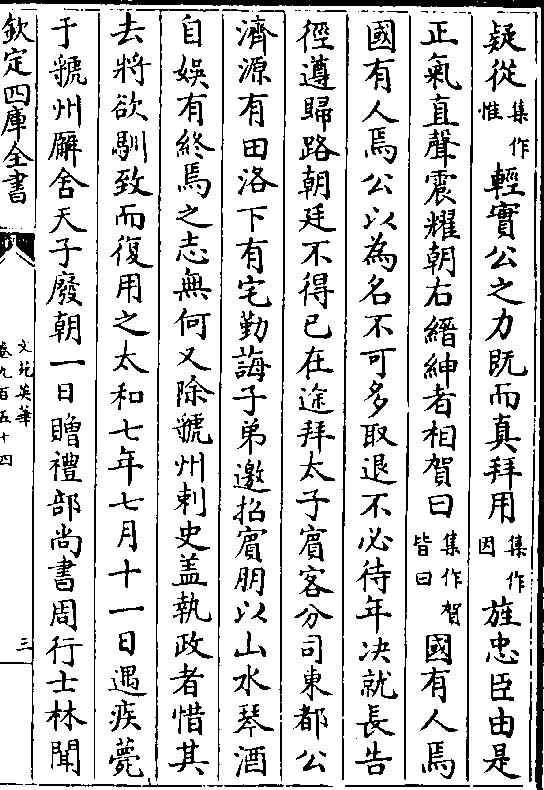 疑從集作惟輕實公之力既而真拜用集作因旌忠臣由是
正氣直聲震耀朝右縉紳者相賀曰集作賀皆曰國有人焉
國有人焉公以為名不可多取退不必待年决就長告
徑遵歸路朝廷不得已在途拜太子賔客分司東都公
濟源有田洛下有宅勤誨子弟邀招賔朋以山水琴酒
自娛有終焉之志無何又除虢州刺史盖執政者惜其
去將欲馴致而復用之太和七年七月十一日遇疾薨
于虢州廨舍天子廢朝一日贈禮部尚書周行士林聞
欽定四庫全書
文苑英華
卷九百五十四
三